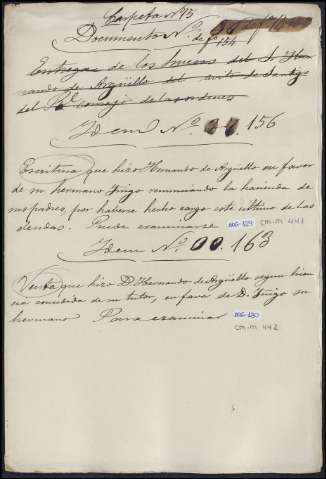 Carpeta nº 15
Documento Nº
de 154
Entregas de los huesos del S. Her
nando de Argüello del avito de Santgo
del Rl Consejo de las ordenes
Idem Nº 156
Escritura que hizo Hernando de Argüello en favor
de su hermano Iñigo renunciando la hacienda de
sus padres, por haberse hecho cargo este ultimo de las
deudas. Puede examinarse
106-129 CM-M 441
Idem Nº 00. 163
Venta que hizo D Hernando de Argüello segun licen
cia concedida de su tutor, en favor de D. Iñigo su
hermano Para examinar
106-130
CM-M 442